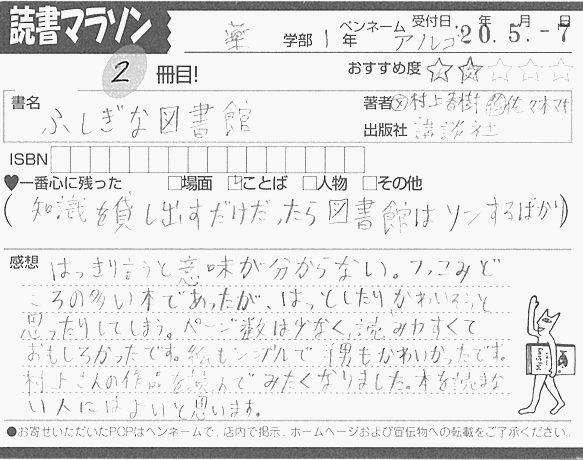 読書マラソン
薬 学部 1 年 ペンネーム アルゴ 受付日 年 月 日 20.5.-7
2 冊目!
おすすめ度 ☆☆☆☆☆
書名 ふしぎな図書館
著者 文 村上春樹 絵 佐々木マキ
出版社 講談社
ISBN
♥一番心に残った □場面 □ことば □人物 □その他
(知識を貸し出すだけだったら図書館はソンするばかり)
感想 はっきり言うと意味が分からない。つっこみど
ころの多い本であったが、はっとしたりかわいそうと
思ったりしてしまう。ページ数は少なく、読みやすくて
おもしろかったです。絵もシンプルで、羊男もかわいかったです。
村上さんの作品を読んでみたくなりました。本を読まな
い人にはよいと思います。
●お寄せいただいたPOPはペンネームで、店内で掲示、ホームページおよび宣伝物への転載をご了承ください。